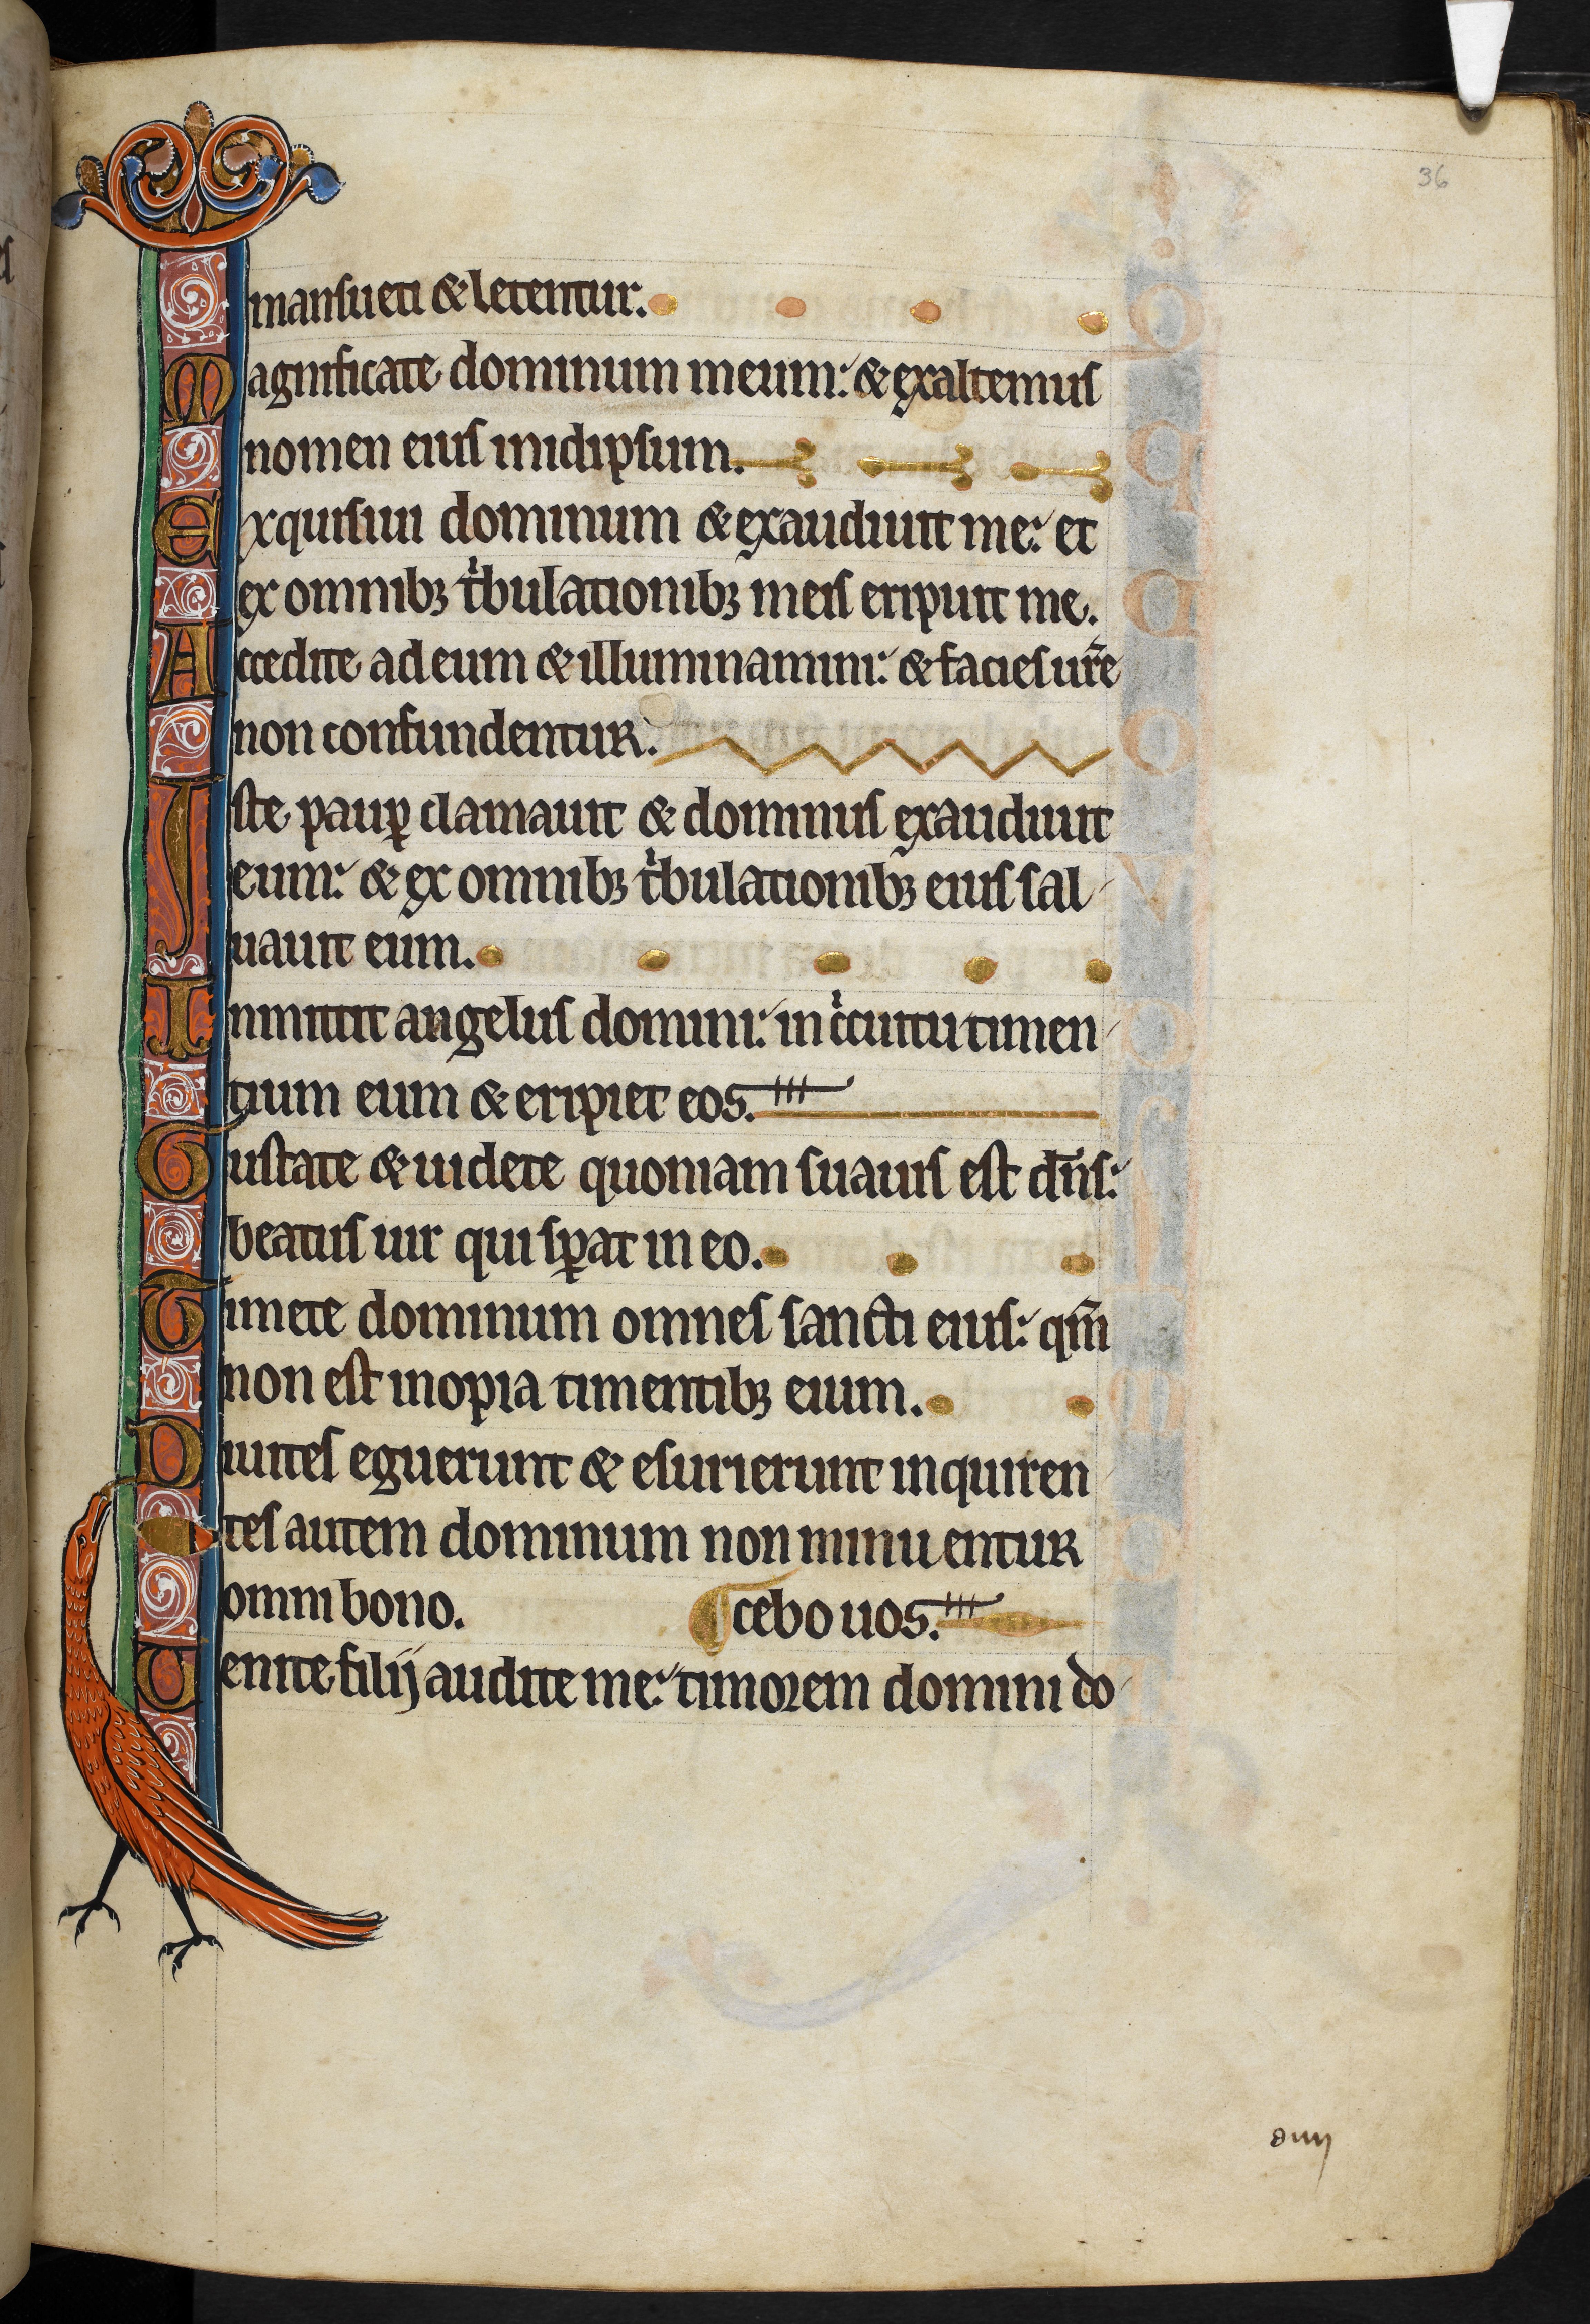 36
mansueti & letentur.
Magnificate dominum meum: & exaltemus
nomen eius inidipsum.
Exquisiui dominum & exaudiuit me: et
ex omnibꝫ tͥbulationibꝫ meis eripuit me.
Accedite ad eum & illuminamini: & facies ur̄e
non confundentur.
Iste paup̲ clamauit & dominus exaudiuit
eum: & ex omnibꝫ tͥbulationibꝫ eius sal
uauit eum.
Inmittit angelus domini: in cͥcuitu timen
tium eum & eripiet eos.
Gustate & uidete quoniam suauis est dn̄s:
beatus uir qui sꝑat in eo.
Timete dominum omnes sancti eius: qm̄
non est inopia timentibꝫ eium.
Diuites eguerunt & esurierunt inquiren
tes autem dominum non minuentur
omni bono. cebo uos.
Uenite filij audite me: timorem domini do